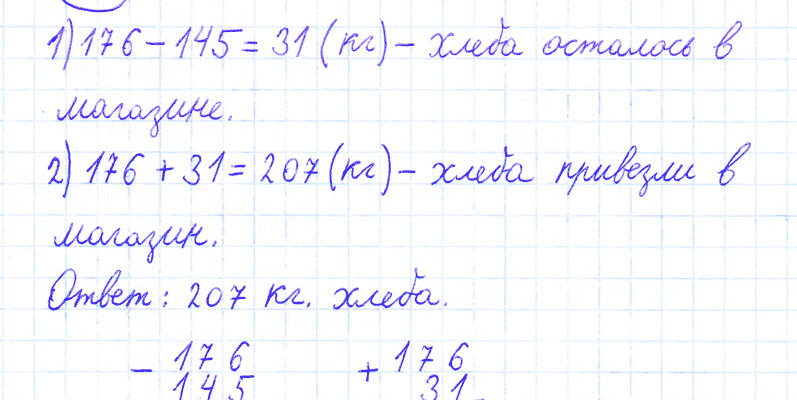 1) 176 - 145 = 31 (кг) - хлеба осталось в
магазине.
2) 176 + 31 = 207 (кг) - хлеба привезли в
магазин.
Ответ: 207 кг. хлеба.
- 176 + 176
145 31